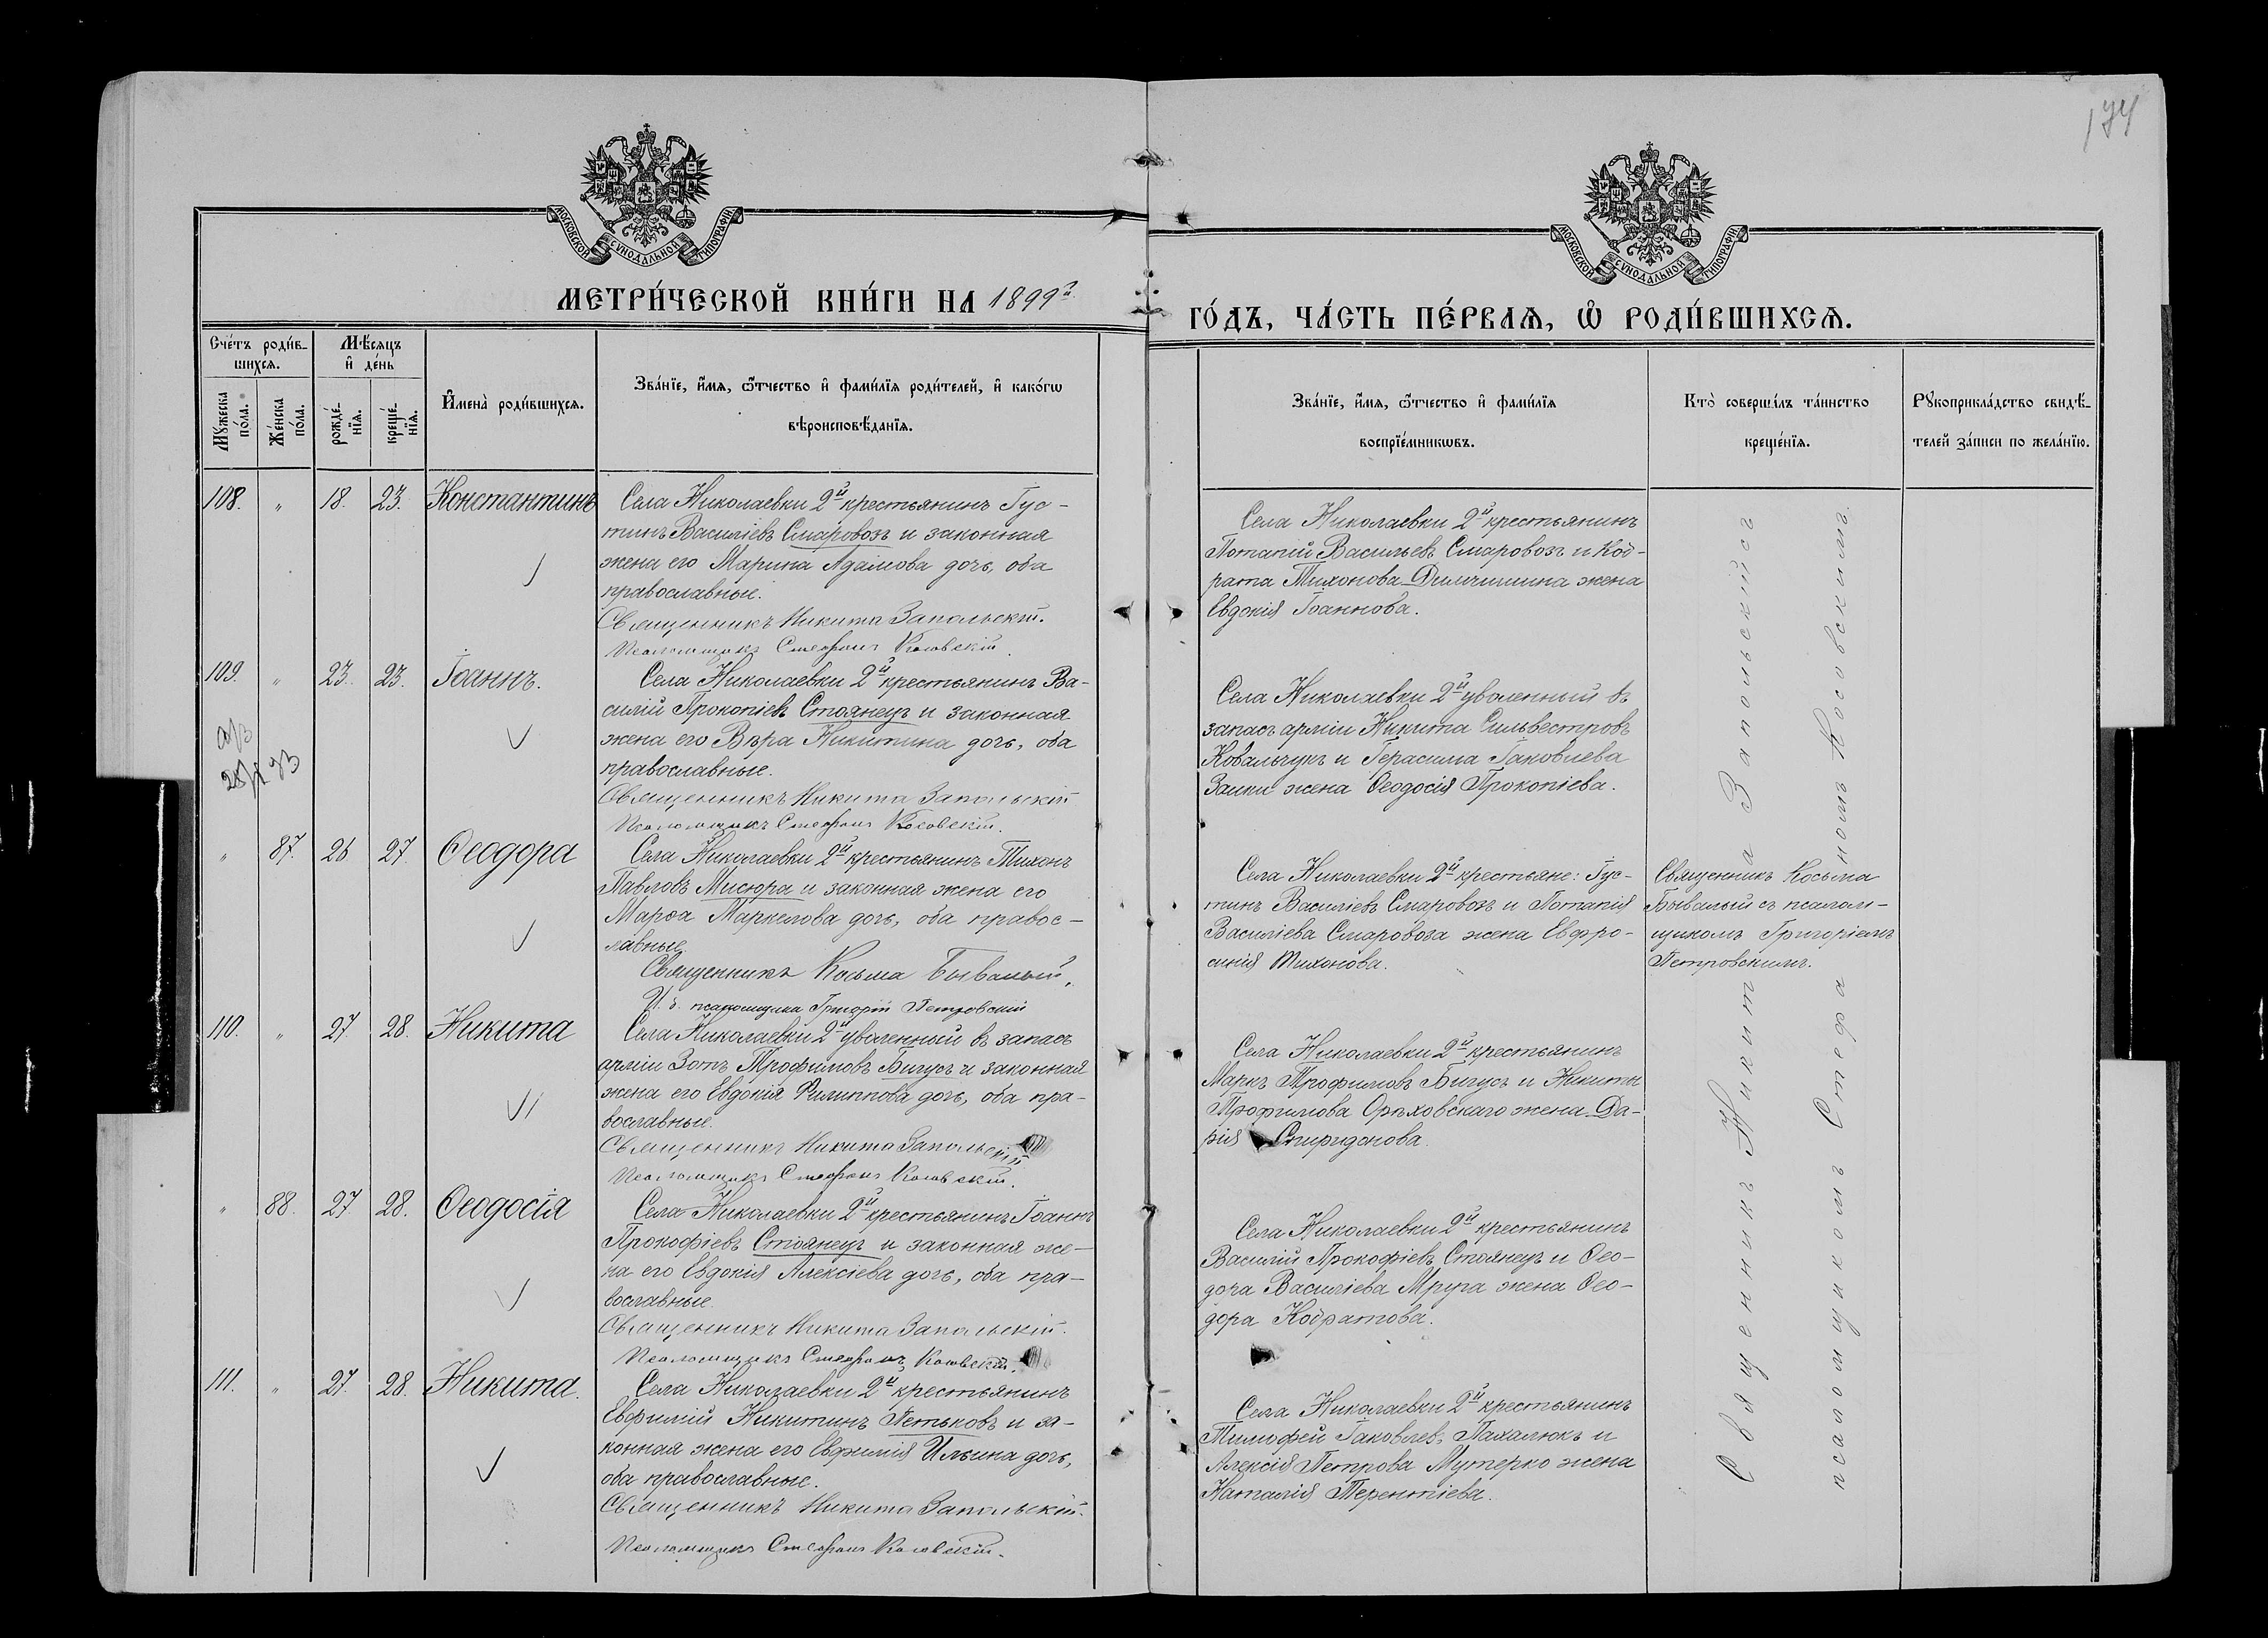 174
МОСКОВСКОЙ СѴНОДАЛЬНОЙ ТИПОГРАФІИ
МОСКОВСКОЙ СѴНОДАЛЬНОЙ ТИПОГРАФІИ
МЕТРИ́ЧЕСКОЙ КНИ́ГИ НА 1899й
ГО́ДЪ, ЧА́СТЬ ПЕ́РВАѦ, Ѡ҆ РОДИ́ВШИХСѦ.
Сче́тъ роди́в-
шихсѧ.
Мѣ́сѧцъ
и҆ де́нь
Мꙋ́жеска
по́ла.
Же́нска
по́ла.
рожде́-
нїѧ.
креще́-
нїѧ.
И҆мена̀ роди́вшихсѧ.
Зва́нїе, и҆́мѧ, ѻ҆́тчество и҆ фами́лїѧ роди́телей, и҆ како́гѡ
вѣроисповѣ́данїѧ.
Зва́нїе, и҆́мѧ, ѻ҆́тчество и҆ фами́лїѧ
воспрїе́мникѡвъ.
Кто̀ соверша́лъ та́инство
креще́нїѧ.
Рꙋкоприкла́дство свидѣ́-
телей за́писи по жела́нїю.
108. " 18. 23. Константинъ
Села Николаевки 2й крестьянинъ Іус-
тинъ Василіевъ Смаровозъ и законная
жена его Марина Адамова дочь, оба
православные.
Священникъ Никита Запольскій.
Псаломщикъ Стефанъ Косовскій.
Села Николаевки 2й крестьянинъ
Потапій Васильевъ Смаровозъ и Код-
рата Тихонова Димчишина жена
Евдокія Іоаннова.
109. " 23. 23. Іоаннъ.
Села Николаевки 2й крестьянинъ Ва-
силій Прокопіевъ Стоянецъ и законная
жена его Вѣра Никитина дочь, оба
православные.
Священникъ Никита Запольскій
Псаломщикъ Стефанъ Косовскій.
Села Николаевки 2й уволенный въ
запасъ арміи Никита Сильвестровъ
Ковальчукъ и Герасима Іаковлева
Заики жена Ѳеодосія Прокопіева.
" 87. 26 27. Ѳеодора
Села Николаевки 2й крестьянинъ Тихонъ
Павловъ Мисюра и законная жена его
Марѳа Маркелова дочь, оба правос-
лавные.
Священникъ Косьма Бывалый.
И. д. псаломщика Григорій Петровскій
Села Николаевки 2й крестьяне: Іус-
тинъ Василіевъ Смаровозъ и Потапія
Василіева Смаровоза жена Евфро-
синія Тихонова.
Священникъ Косьма
Бывалый съ псалом-
щикомъ Григоріемъ
Петровскимъ.
110. " 27. 28. Никита
Села Николаевки 2й уволенный въ запасъ
арміи Зотъ Трофимовъ Бигусъ и законная
жена его Евдокія Филиппова дочь, оба пра-
вославные.
Священникъ Никита Запольскій
Псаломщикъ Стефанъ Косовскій.
Села Николаевки 2й крестьянинъ
Маркъ Трофимовъ Бигусъ и Никиты
Трофимова Орѣховскаго жена Да-
рія Спиридонова.
" 88. 27. 28. Ѳеодосія
Села Николаевки 2й крестьянинъ Іоаннъ
Прокофіевъ Стоянецъ и законная же-
на его Евдокія Алексіева дочь, оба пра-
вославные.
Священникъ Никита Запольскій.
Псаломщикъ Стефанъ Косовскій.
Села Николаевки 2й крестьянинъ
Василій Прокофіевъ Стоянецъ и Ѳео-
дора Василіева Мруга жена Ѳео-
дора Кодратова.
111. " 27. 28. Никита.
Села Николаевки 2й крестьянинъ
Евфимій Никитинъ Петьковъ и за-
конная жена его Евфимія Ильина дочь,
оба православные.
Священникъ Никита Запольскій.
Псаломщикъ Стефанъ Косовскій.
Села Николаевки 2й крестьянинъ
Тимофей Іаковлевъ Пахалюкъ и
Алексія Петрова Мутерко жена
Наталія Терентіева.
Священникъ Никита Запольскій съ
псаломщикомъ Стефаномъ Косовскимъ.